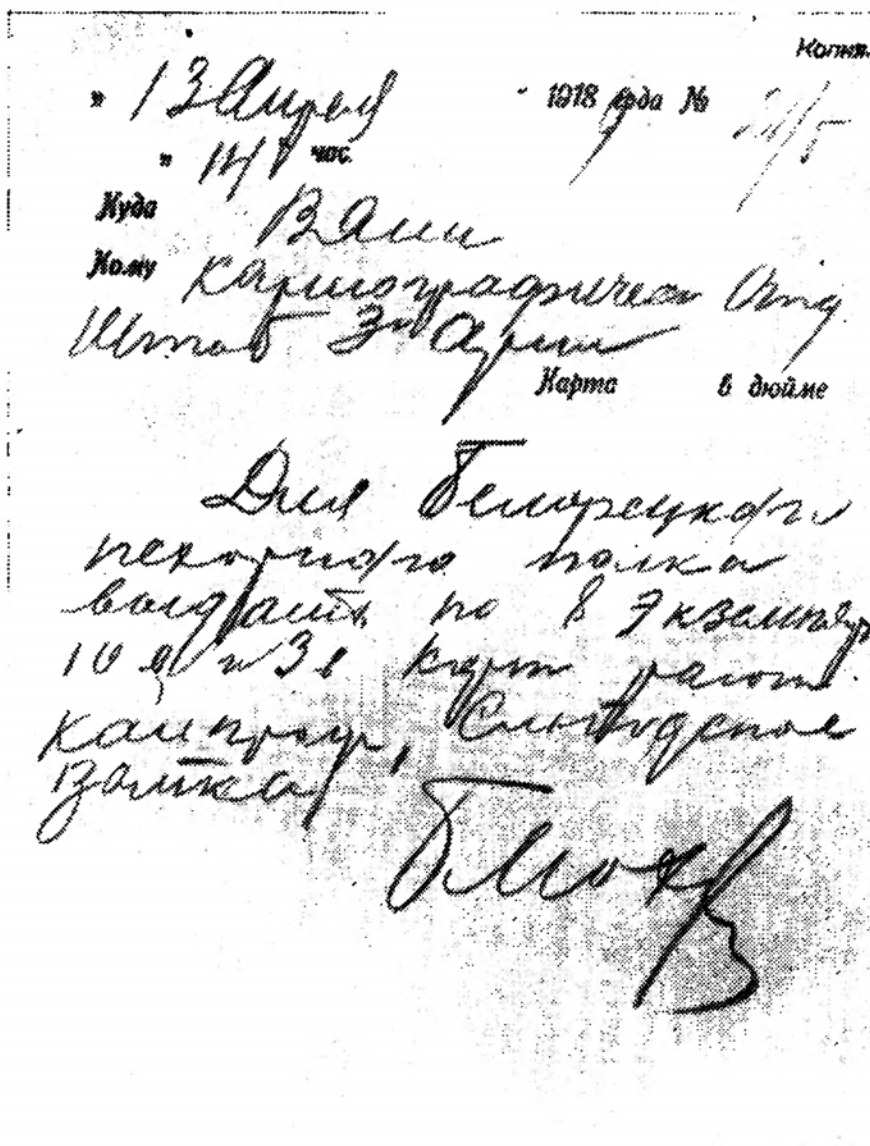 Копия.
" 13 Апреля 1918 года № 24/5
" 14 " час.
Куда Вятка
Кому Картографическ Отд
Штаб 3й Армии
Карта в дюйме
Для Белорецкого
пехотного полка
выдать по 8 экземпляр
10 в и 3 в карт район
Слободское
Вятка
Блюхер